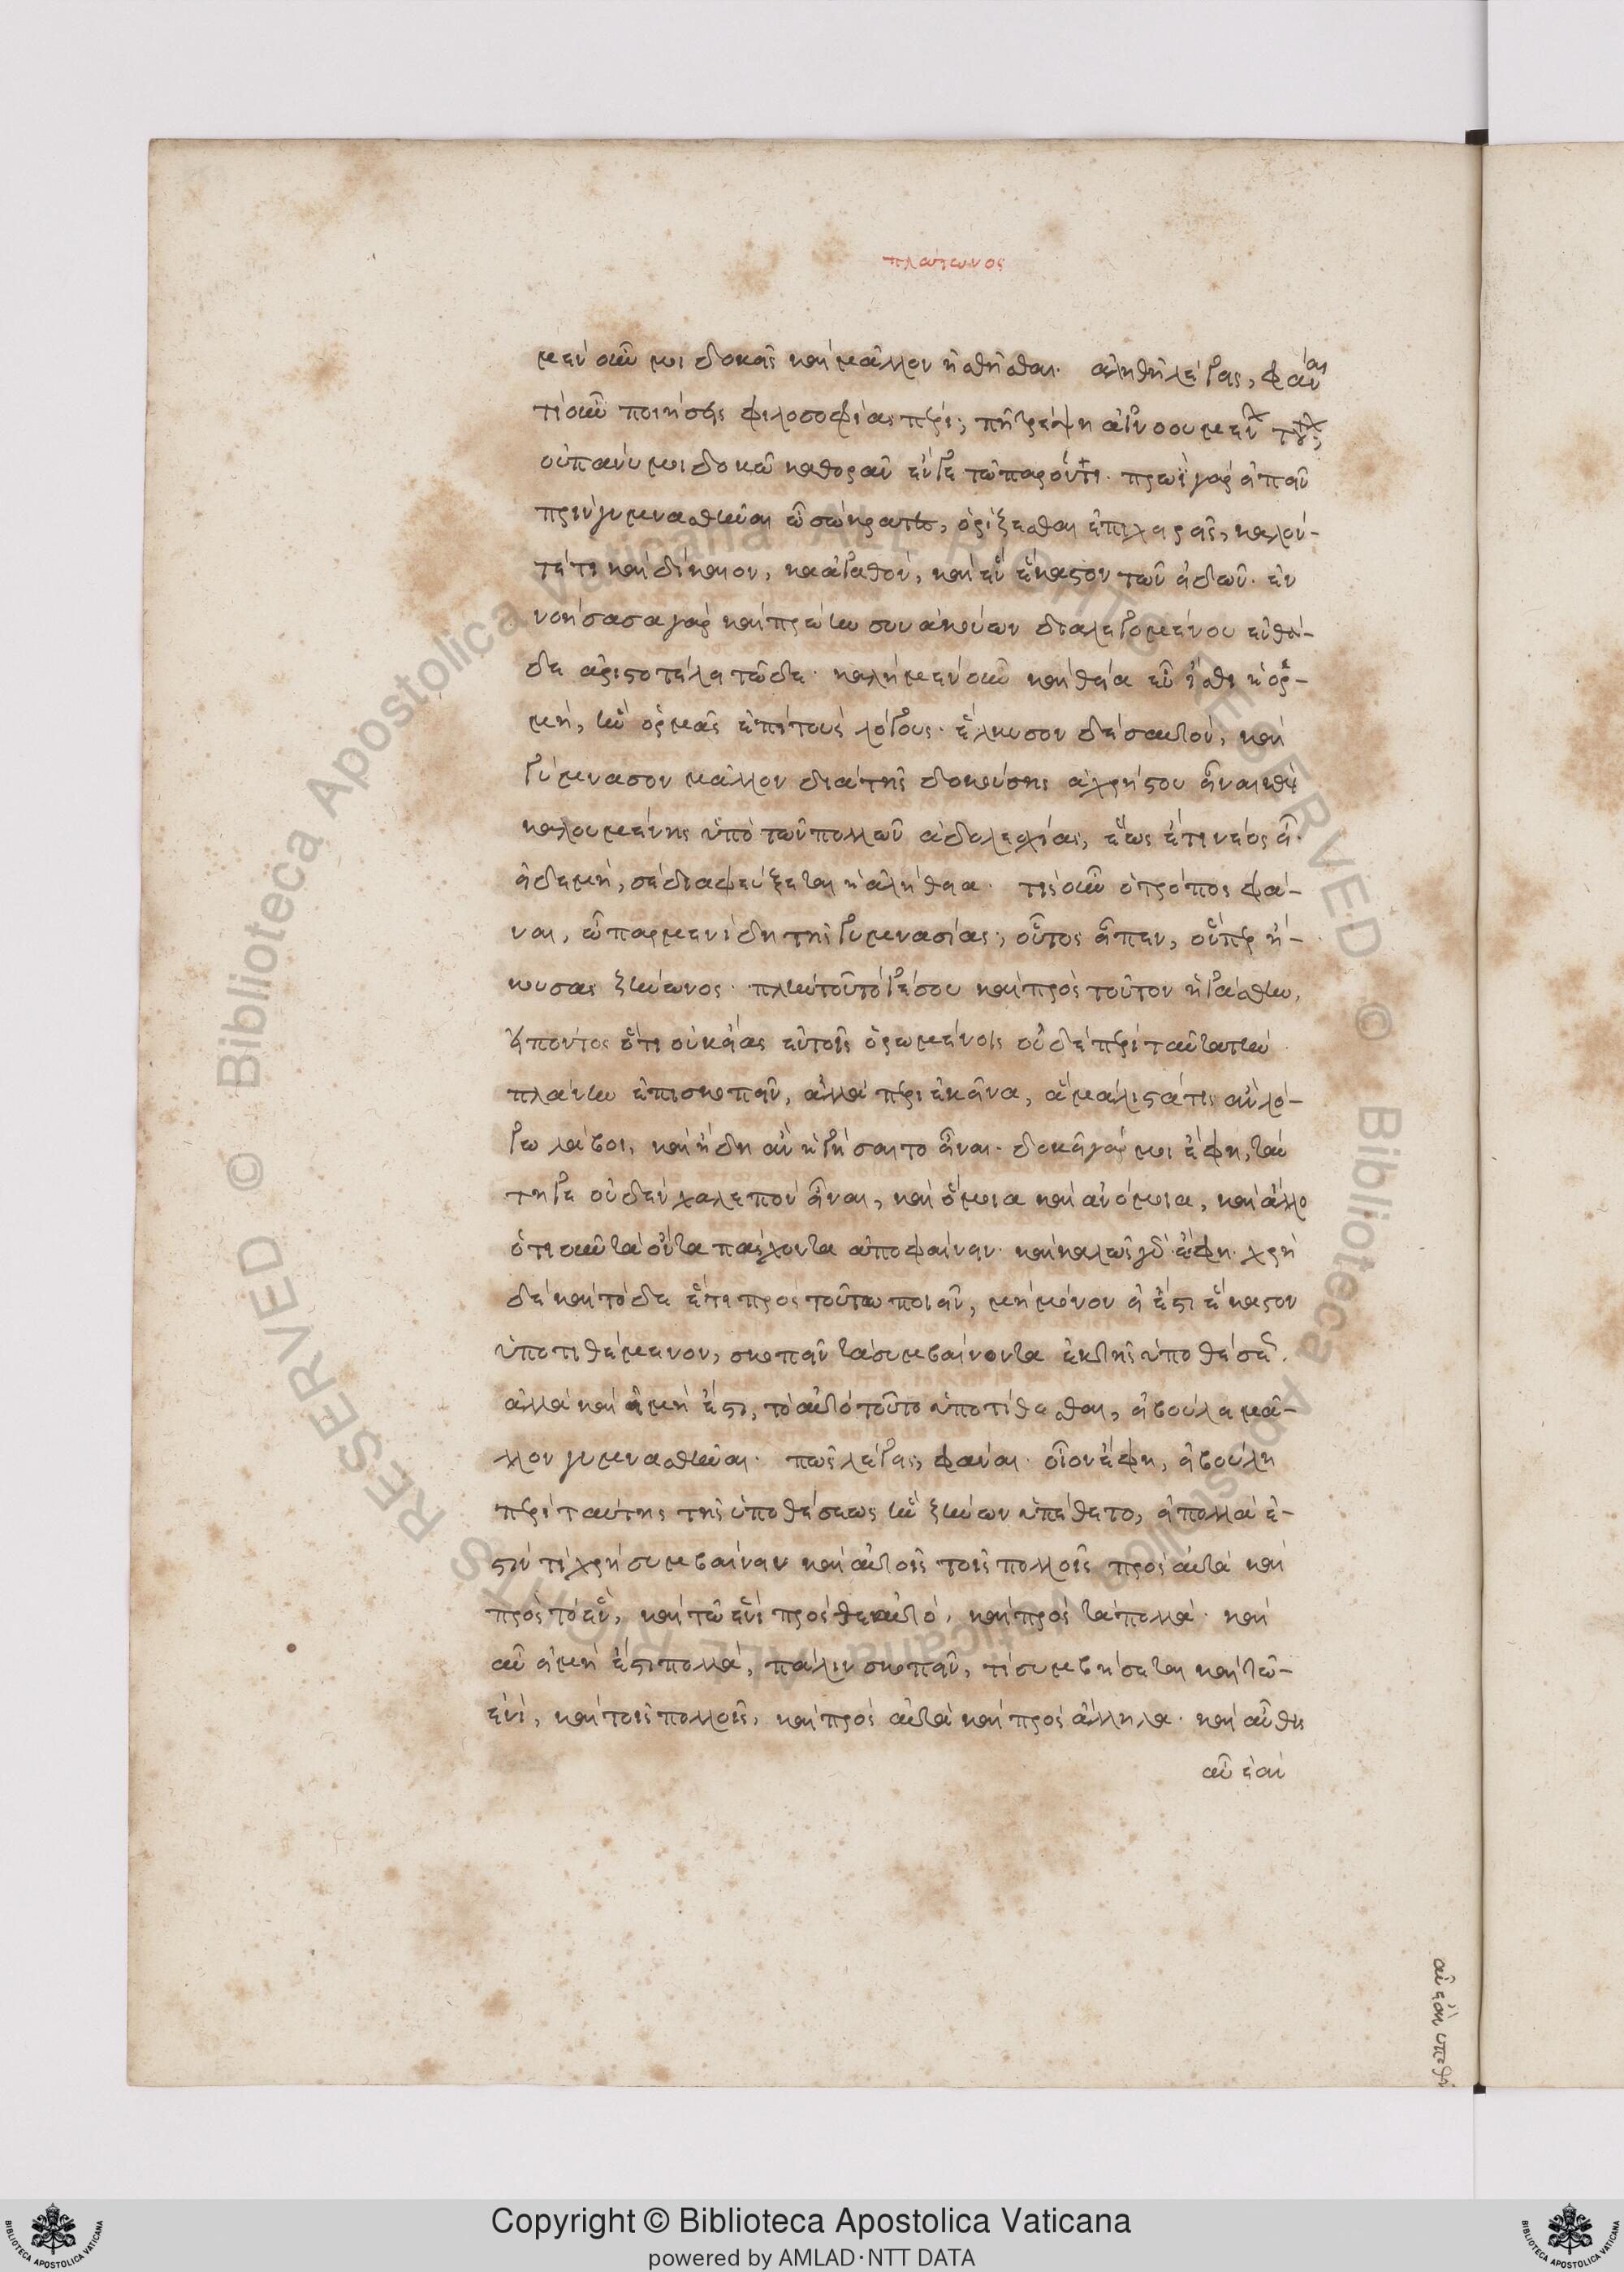 πλάτωνος
μὲν οὖν μοι δοκεῖς καὶ μᾶλλον ᾐσθῆσθαι. ἀληθῆ λέγεις, φάναι
τί οὖν ποιήσεις φιλοσοφίας πέρι; πῆ τρέψη ἀγνοουμένων τούτων;
οὐ πάνυ μοι δοκῶ καθορᾶν ἔν γε τῶ παρόντι. πρωῒ γὰρ εἰπεῖν
πρὶν γυμνασθῆναι ὦ σώκρατες, ὁρίζεσθαι ἐπιχειρεῖς, καλόν
τέ τι καὶ δίκαιον, καὶ ἀγαθὸν, καὶ ἓν ἕκαστον τῶν εἰδῶν. ἐν
νοήσασα γὰρ καὶ πρώην σου ἀκούων διαλεγομένου ἐνθά-
δε ἀριστοτέλει τῶδε. καλὴ μὲν οὖν καὶ θεία εὖ ἴσθι ἡ ὁρ-
μὴ, ἣν ὁρμᾶς ἐπὶ τοὺς λόγους. ἕλκυσον δὲ σαυτὸν, καὶ
γύμνασον μᾶλλον διὰ τῆς δοκούσης ἀχρήστου εἶναι καὶ
καλουμένης ὑπὸ τῶν πολλῶν ἀδολεσχίας, ἕως ἔτι νέος εἶ.
εἰ δὲ μὴ, σὲ διαφεύξεται ἡ ἀλήθεια. τίς οὖν ὁ τρόπος φά-
ναι, ὦ παρμενίδη τῆς γυμνασίας; οὗτος εἶπεν, οὗπερ ἤ-
κουσας ζήνωνος. πλὴν τοῦτό γέ σου καὶ πρὸς τοῦτον ἠγάσθην,
εἰπόντος ὅτι οὐκ εἴας ἐν τοῖς ὁρωμένοις οὐδὲ περὶ ταῦτα τὴν
πλάνην ἐπισκοπεῖν, ἀλλὰ περὶ ἐκεῖνα, ἃ μάλιστά τις ἂν λό-
γω λάβοι, καὶ εἴδη ἂν ἡγήσαιτο εἶναι. δοκεῖ γάρ μοι ἔφη, ταύ
τη γε οὐδὲν χαλεπὸν εἶναι, καὶ ὅμοια καὶ ἀνόμοια, καὶ ἄλλο
ὁτιοῦν τὰ ὄντα πάσχοντα ἀποφαίνειν. καὶ καλῶς γ' ἔφη. χρὴ
δὲ καὶ τόδε ἔτι πρὸς τούτω ποιεῖν, μὴ μόνον εἰ ἔστι ἕκαστον
ὑποτιθέμενον, σκοπεῖν τὰ συμβαίνοντα ἐκ τῆς ὑποθέσεως.
ἀλλὰ καὶ εἰ μὴ ἔστι, τὸ αὐτὸ τοῦτο ὑποτίθεσθαι, εἰ βούλει μᾶ-
λλον γυμνασθῆναι. πῶς λέγεις, φάναι. οἷον ἔφη, εἰ βούλη
περὶ ταύτης τῆς ὑποθέσεως ἣν ζήνων ὑπέθετο, εἰ πολλὰ ἐ-
στὶν τί χρὴ συμβαίνειν καὶ αὐτοῖς τοῖς πολλοῖς πρὸς αὐτὰ καὶ
πρὸς τὸ ἓν, καὶ τῶ ἑνὶ πρός τε αὐτὸ, καὶ πρὸς τὰ πολλά. καὶ
αὖ εἰ μή ἐστι πολλὰ, πάλιν σκοπεῖν, τί συμβήσεται καὶ τῶ-
ἑνὶ, καὶ τοῖς πολλοῖς, καὶ πρὸς αὐτὰ καὶ πρὸς ἄλληλα. καὶ αὖθις
αὖ ἐὰν
αὖ ἐὰν ὑποθῆ
Copyright © Biblioteca Apostolica Vaticana
powered by AMLAD·NTT DATA